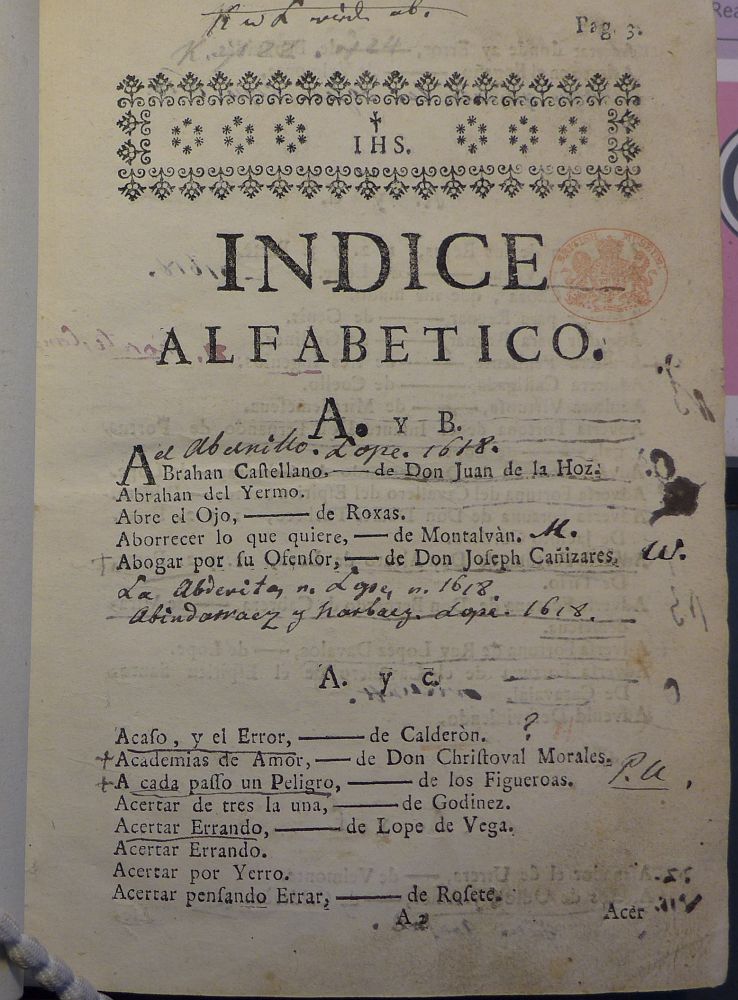 Pag. 3.
IHS.
INDICE
ALFABETICO.
A. y B.
el Abenillo. Lope. 1618.
ABrahan Caſtellano, —— de Don Juan de la Hoz.
Abrahan del Yermo.
Abre el Ojo, —— de Roxas.
Aborrecer lo que quiere, —— de Montalvàn. M.
+ Abogar por ſu Ofenſor, —— de Don Joſeph Cañizares. W.
La Abderita, n. Lope, n. 1618.
Abindarraez y Narbaez. Lope. 1618.
A. y C.
Acaſo, y el Error, —— de Calderòn. ?
+ Academias de Amor, —— de Don Chriſtoval Morales.
+ A cada paſſo un Peligro, —— de los Figueroas.
Acertar de tres la una, —— de Godinez.
Acertar Errando, —— de Lope de Vega.
Acertar Errando.
Acertar por Yerro.
Acertar penſando Errar, —— de Roſete.
A2 Acer